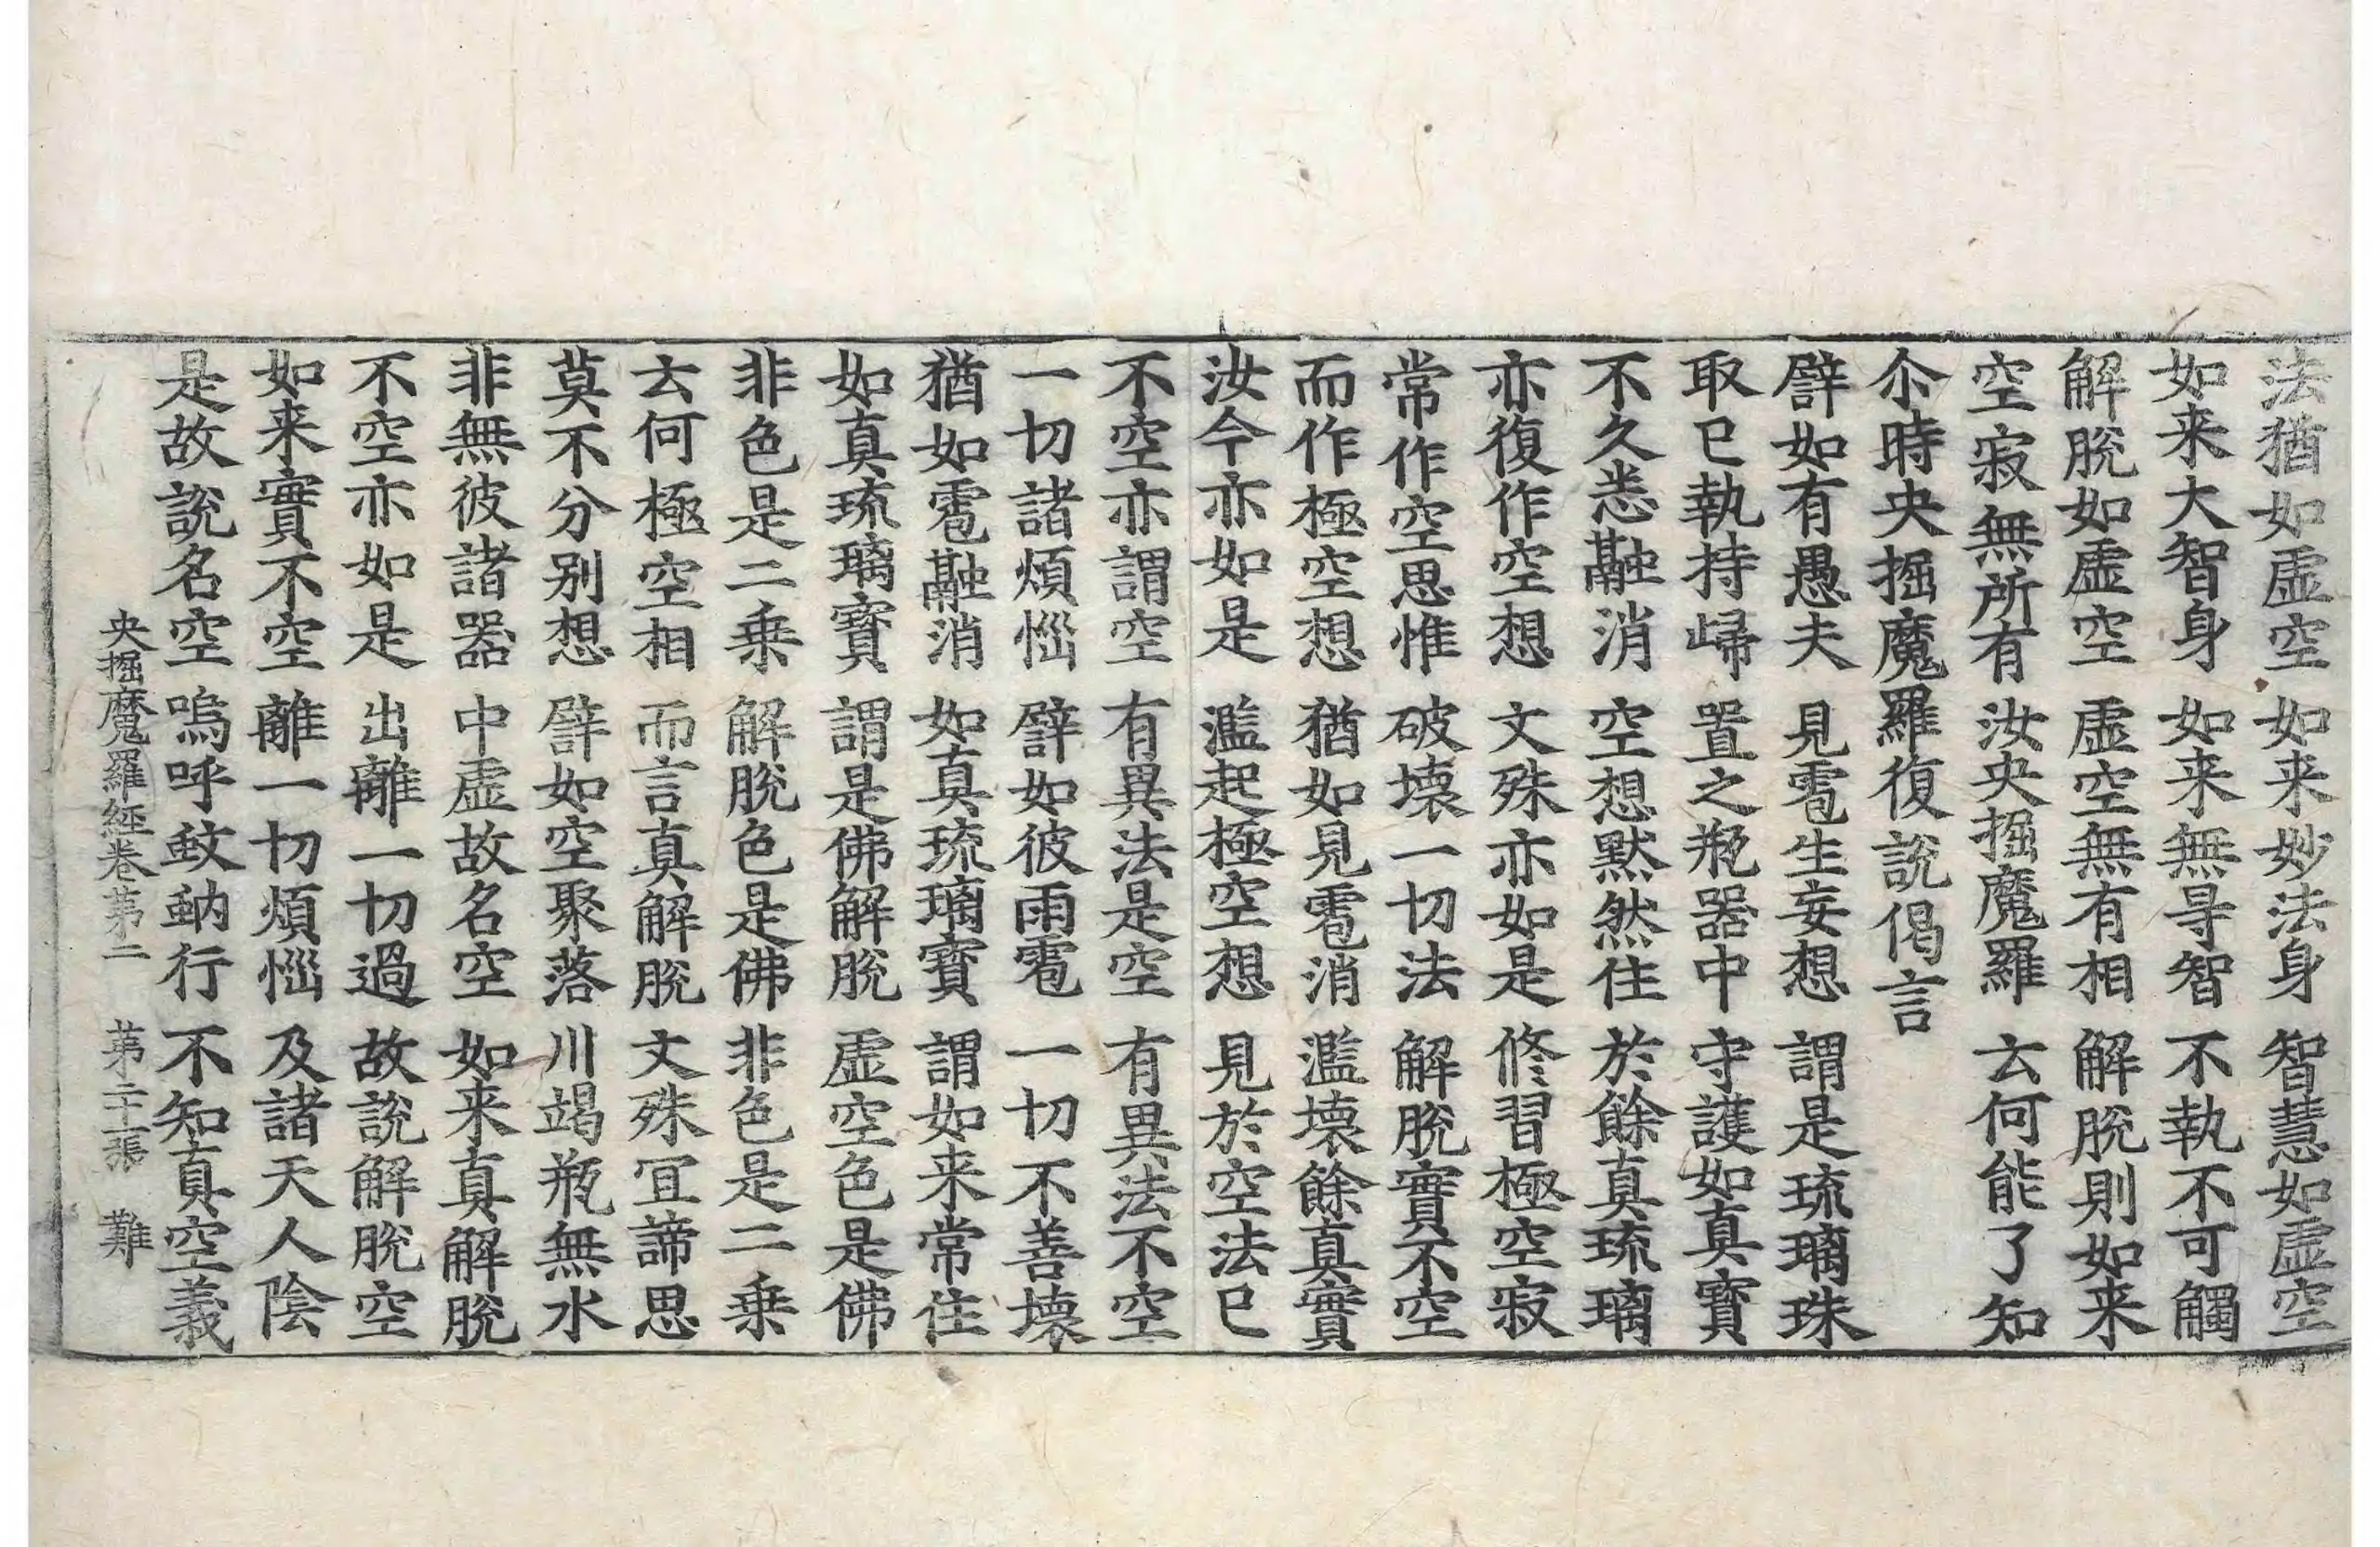 法猶如虛空 如来妙法身 智慧如虛空
如来大智身 如来無㝵智 不執不可觸
解脫如虛空 虛空無有相 解脫則如来
空寂無所有 汝央掘魔羅 云何能了知
尒時央掘魔羅復說偈言
譬如有愚夫 見雹生妄想 謂是琉璃珠
取已執持歸 置之瓶器中 守護如真寶
不久悉融消 空想默然住 於餘真琉璃
亦復作空想 文殊亦如是 修習極空寂
常作空思惟 破壞一切法 解脫實不空
而作極空想 猶如見雹消 濫壞餘真實
汝今亦如是 濫起極空想 見於空法已
不空亦謂空 有異法是空 有異法不空
一切諸煩惱 譬如彼雨雹 一切不善壞
猶如雹融消 如真琉璃寶 謂如来常住
如真琉璃寶 謂是佛解脫 虛空色是佛
非色是二乗 解脫色是佛 非色是二乗
云何極空相 而言真解脫 文殊冝諦思
莫不分别想 譬如空聚落 川竭瓶無水
非無彼諸器 中虛故名空 如来真解脫
不空亦如是 出離一切過 故說解脫空
如来實不空 離一切煩惱 及諸天人陰
是故說名空 嗚呼蚊蚋行 不知真空義
央掘魔羅経卷苐二 苐二十張 難